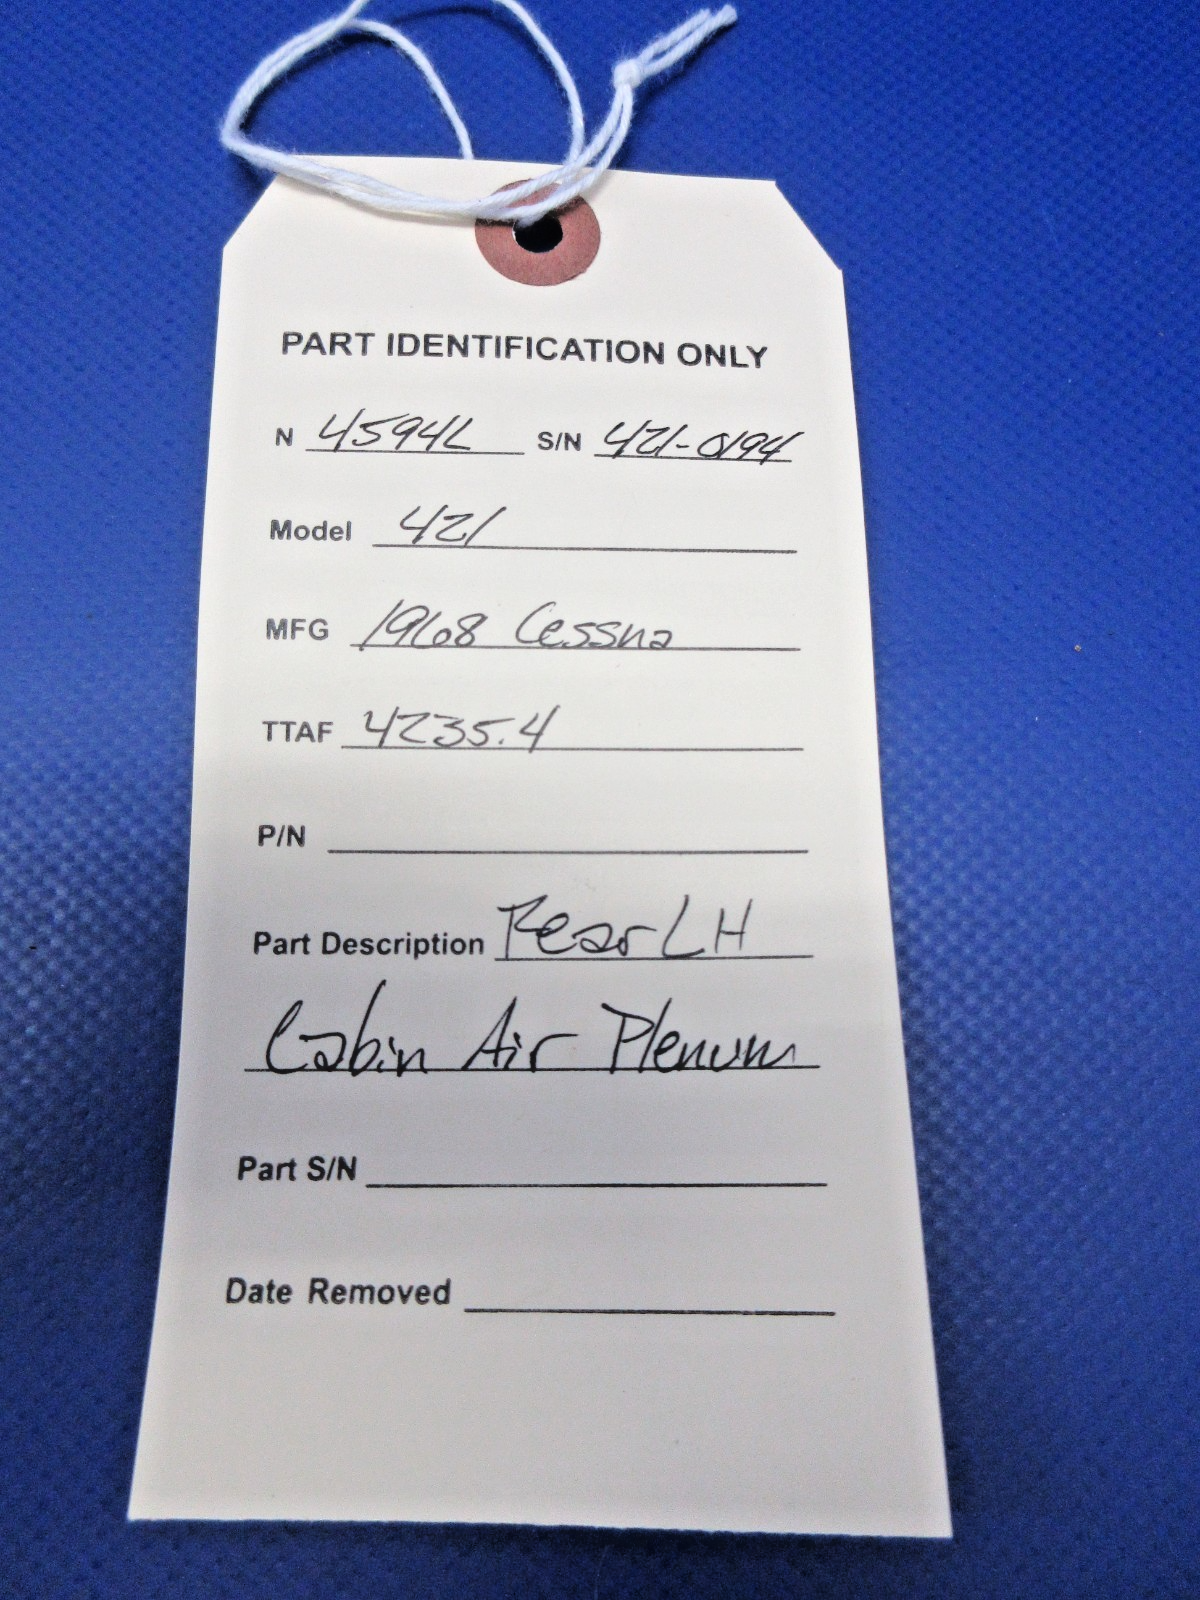 PART IDENTIFICATION ONLY
N 4594L S/N 421-0194
Model 421
MFG 1968 Cessna
TTAF 4235.4
P/N
Part Description Rear LH
Cabin Air Plenum
Part S/N
Date Removed